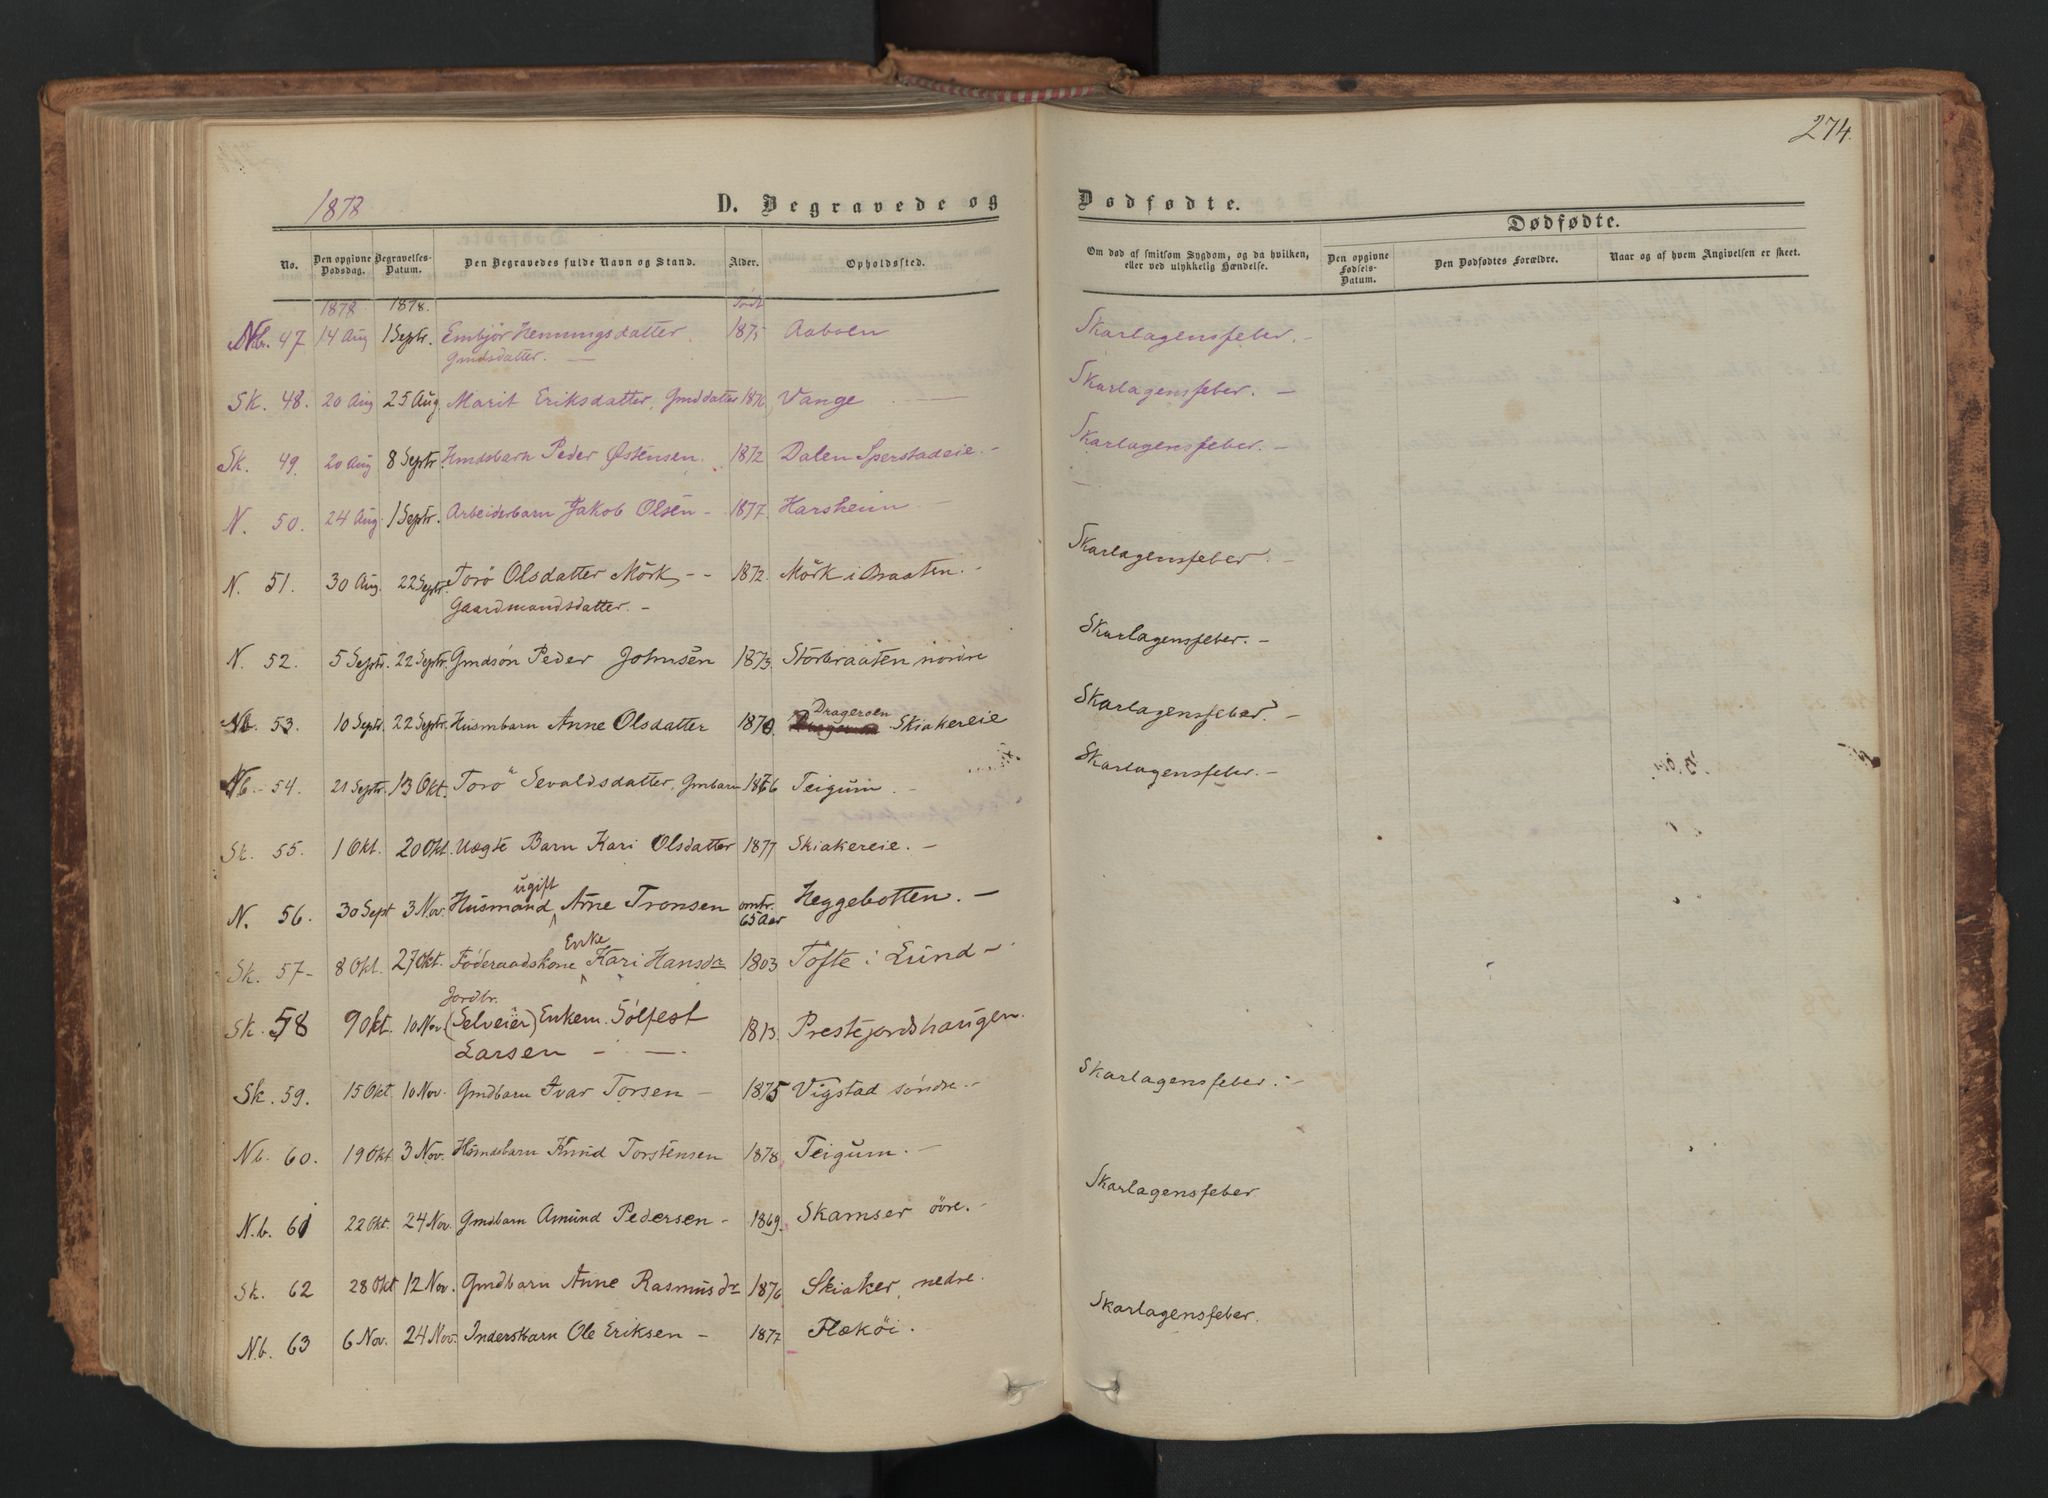 274.
1878
D. Begravede og Dødfødte.
Dødfødte.
No. Den opgivne Dødsdag. Begravelses-Datum. Den Begravedes fulde Navn og Stand. Alder. Opholdssted. Om død af smitsom Sygdom, og da hvilken, eller ved ulykkelig Hændelse. Den opgivne Fødsels-Datum. Den Dødfødtes Forældre. Naar og af hvem Angivelsen er skeet.
1878. 1878. Født
Nb. 47 14 Aug 1 Septr. Embjør Hemmingsdatter 1875 Aaboen Skarlagensfeber. -
Gmdsdatter. -
Sk. 48. 20 Aug 25 Aug. Marit Eriksdatter, Gmddatter 1876 Vange Skarlagensfeber. -
Sk. 49. 20 Aug 8 Septr. Hmdsbarn Peder Østensen. 1872 Dalen Sperstadeie. - Skarlagensfeber. -
N. 50. 24 Aug 1 Septr. Arbeiderbarn Jakob Olsen - 1877. Harsheim -
N. 51. 30 Aug. 22 Septr. Torø Olsdatter Mörk - - 1872. Mörk i Braaten. - Skarlagensfeber. -
Gaardmandsdatter. -
N. 52. 5 Septr. 22 Septr. Gmdsön Peder Johnsen 1873. Storbraaten nordre Skarlagensfeber. -
Nb. 53. 10 Septr. 22 Septr. Husmbarn Anne Olsdatter 1870. Drageroen Skiakereie Skarlagensfeber. -
Nb. - 54. 21 Septr. 13 Okt. Torö Sevaldsdatter, Gmbarn 1876 Teigum. - Skarlagensfeber. -
Sk. 55. 1 Okt. 20 Okt. Uægte Barn Kari Olsdatter 1877 Skiakereie. -
N. 56. 30 Sept 3 Nov. Husmand ugift Arne Tronsen omtr. 65 Aar Heggebotten. -
Sk. 57 - 8 Okt. 27 Okt. Föderaadskone Enke Kari Hansdr 1803 Töfte i Lund -
Sk. 58 9 Okt. 10 Nov. Jordbr. (Selveier) Enkem. Sölfest 1813. Prestejordshaugen.
Larsen - -
Sk. 59. 15 Okt 10 Nov. Gmdbarn Ivar Torsen - 1875 Vigstad söndre. - Skarlagensfeber. -
Nb. 60. 19 Okt 3 Nov. Hsmdsbarn Knud Torstensen 1878. Teigum. -
N.b. 61 22 Okt. 24 Nov. Gmdbarn Amund Pedersen - 1869. Skamser övre. - Skarlagensfeber
Sk. 62 28 Okt 12 Nov. Gmdbarn Anne Rasmusdr 1876 Skiaker, nedre.
Nb. 63 6 Nov. 24 Nov. Inderstbarn Ole Eriksen - 1877 Flækøi. Skarlagensfeber.